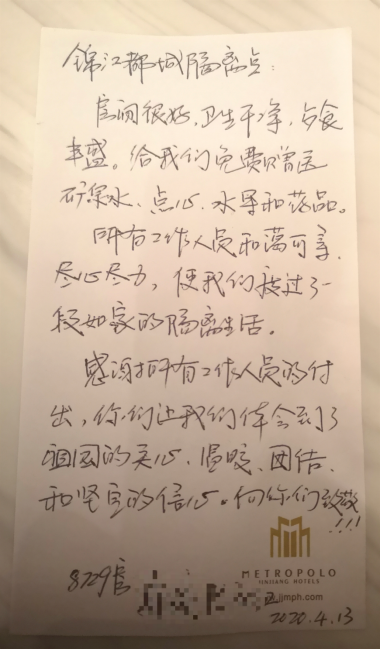 锦江都城隔离点:
房间很好,卫生干净,夕食
丰盛。给我们免费赠送
矿泉水、点心、水果和药品。
所有工作人员和蔼可亲,
尽心尽力,使我们渡过了一
段如家的隔离生活。
感谢所有工作人员的付
出,你们让我们体会到了
祖国的关心、温暖、团结、
和坚定的信心。向你们致敬
!!!
METROPOLO
JINJIANG HOTELS
jjmph.com
8729房
2020.4.13